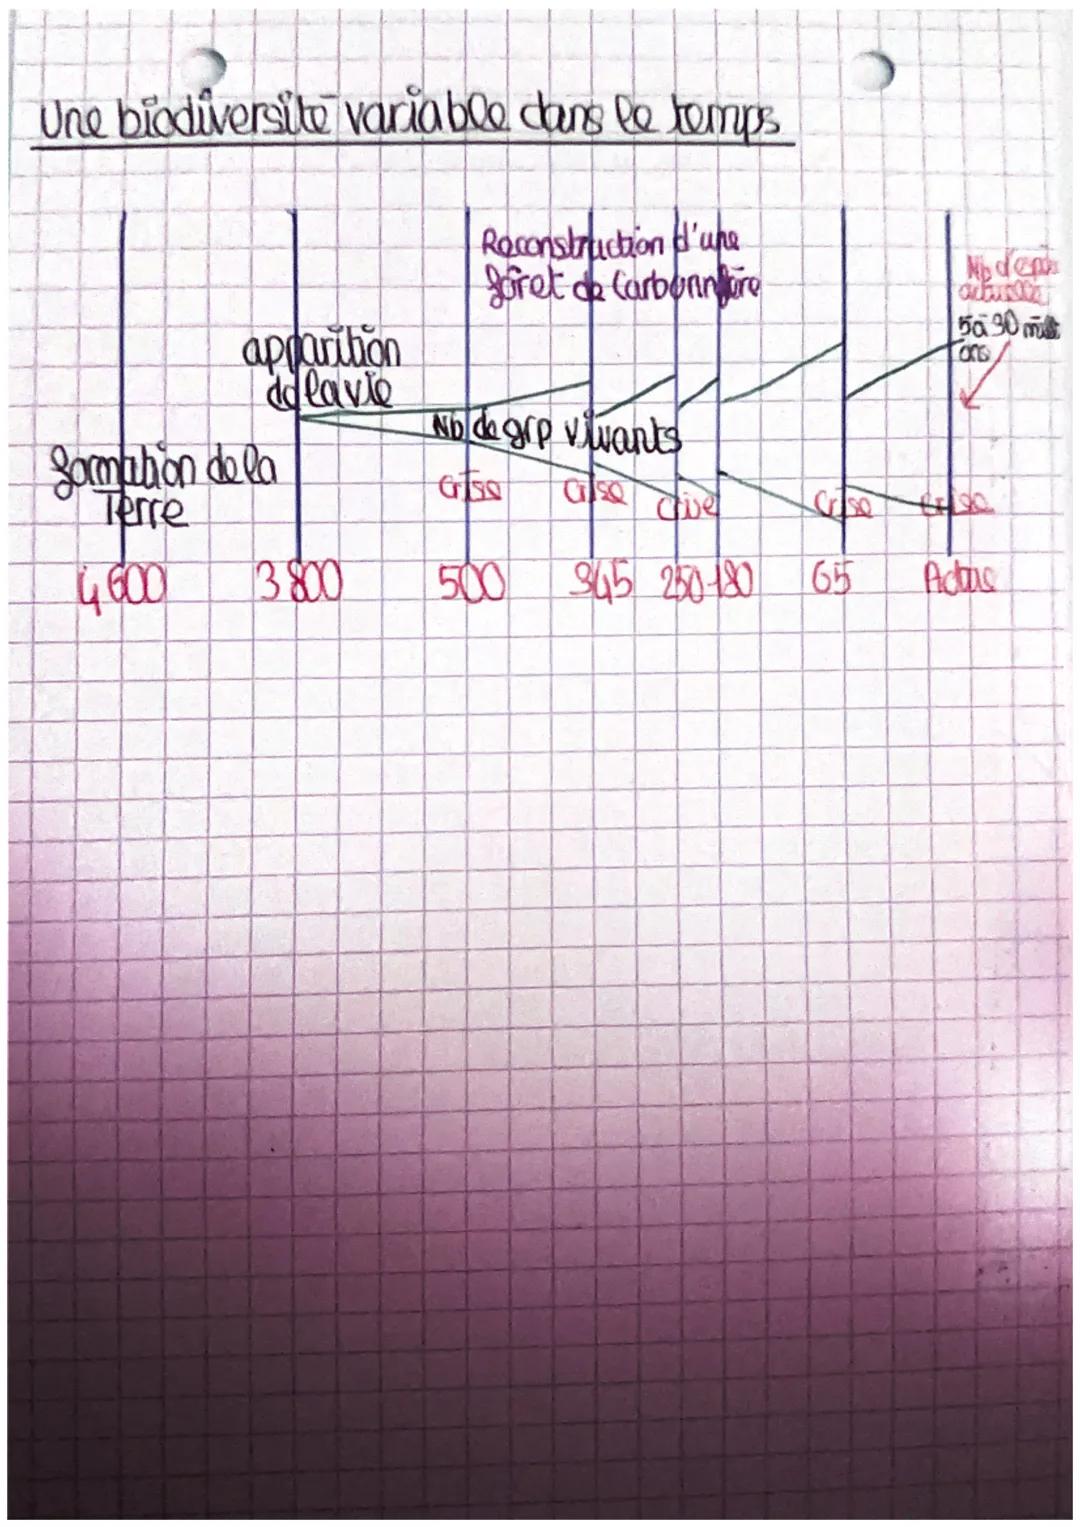 Une biodiversité variable dans le temps
Reconstruction d'une
fôret de Carbonnifère
Nb d'esp
actuelle
5 à 30 mill
ans
apparition
de la vie
Nb de grp vivants
formation de la
Terre
Crise
Crise
Crise
Crise
Crise
4 600
3 800
500
345
250-180
65
Actuc